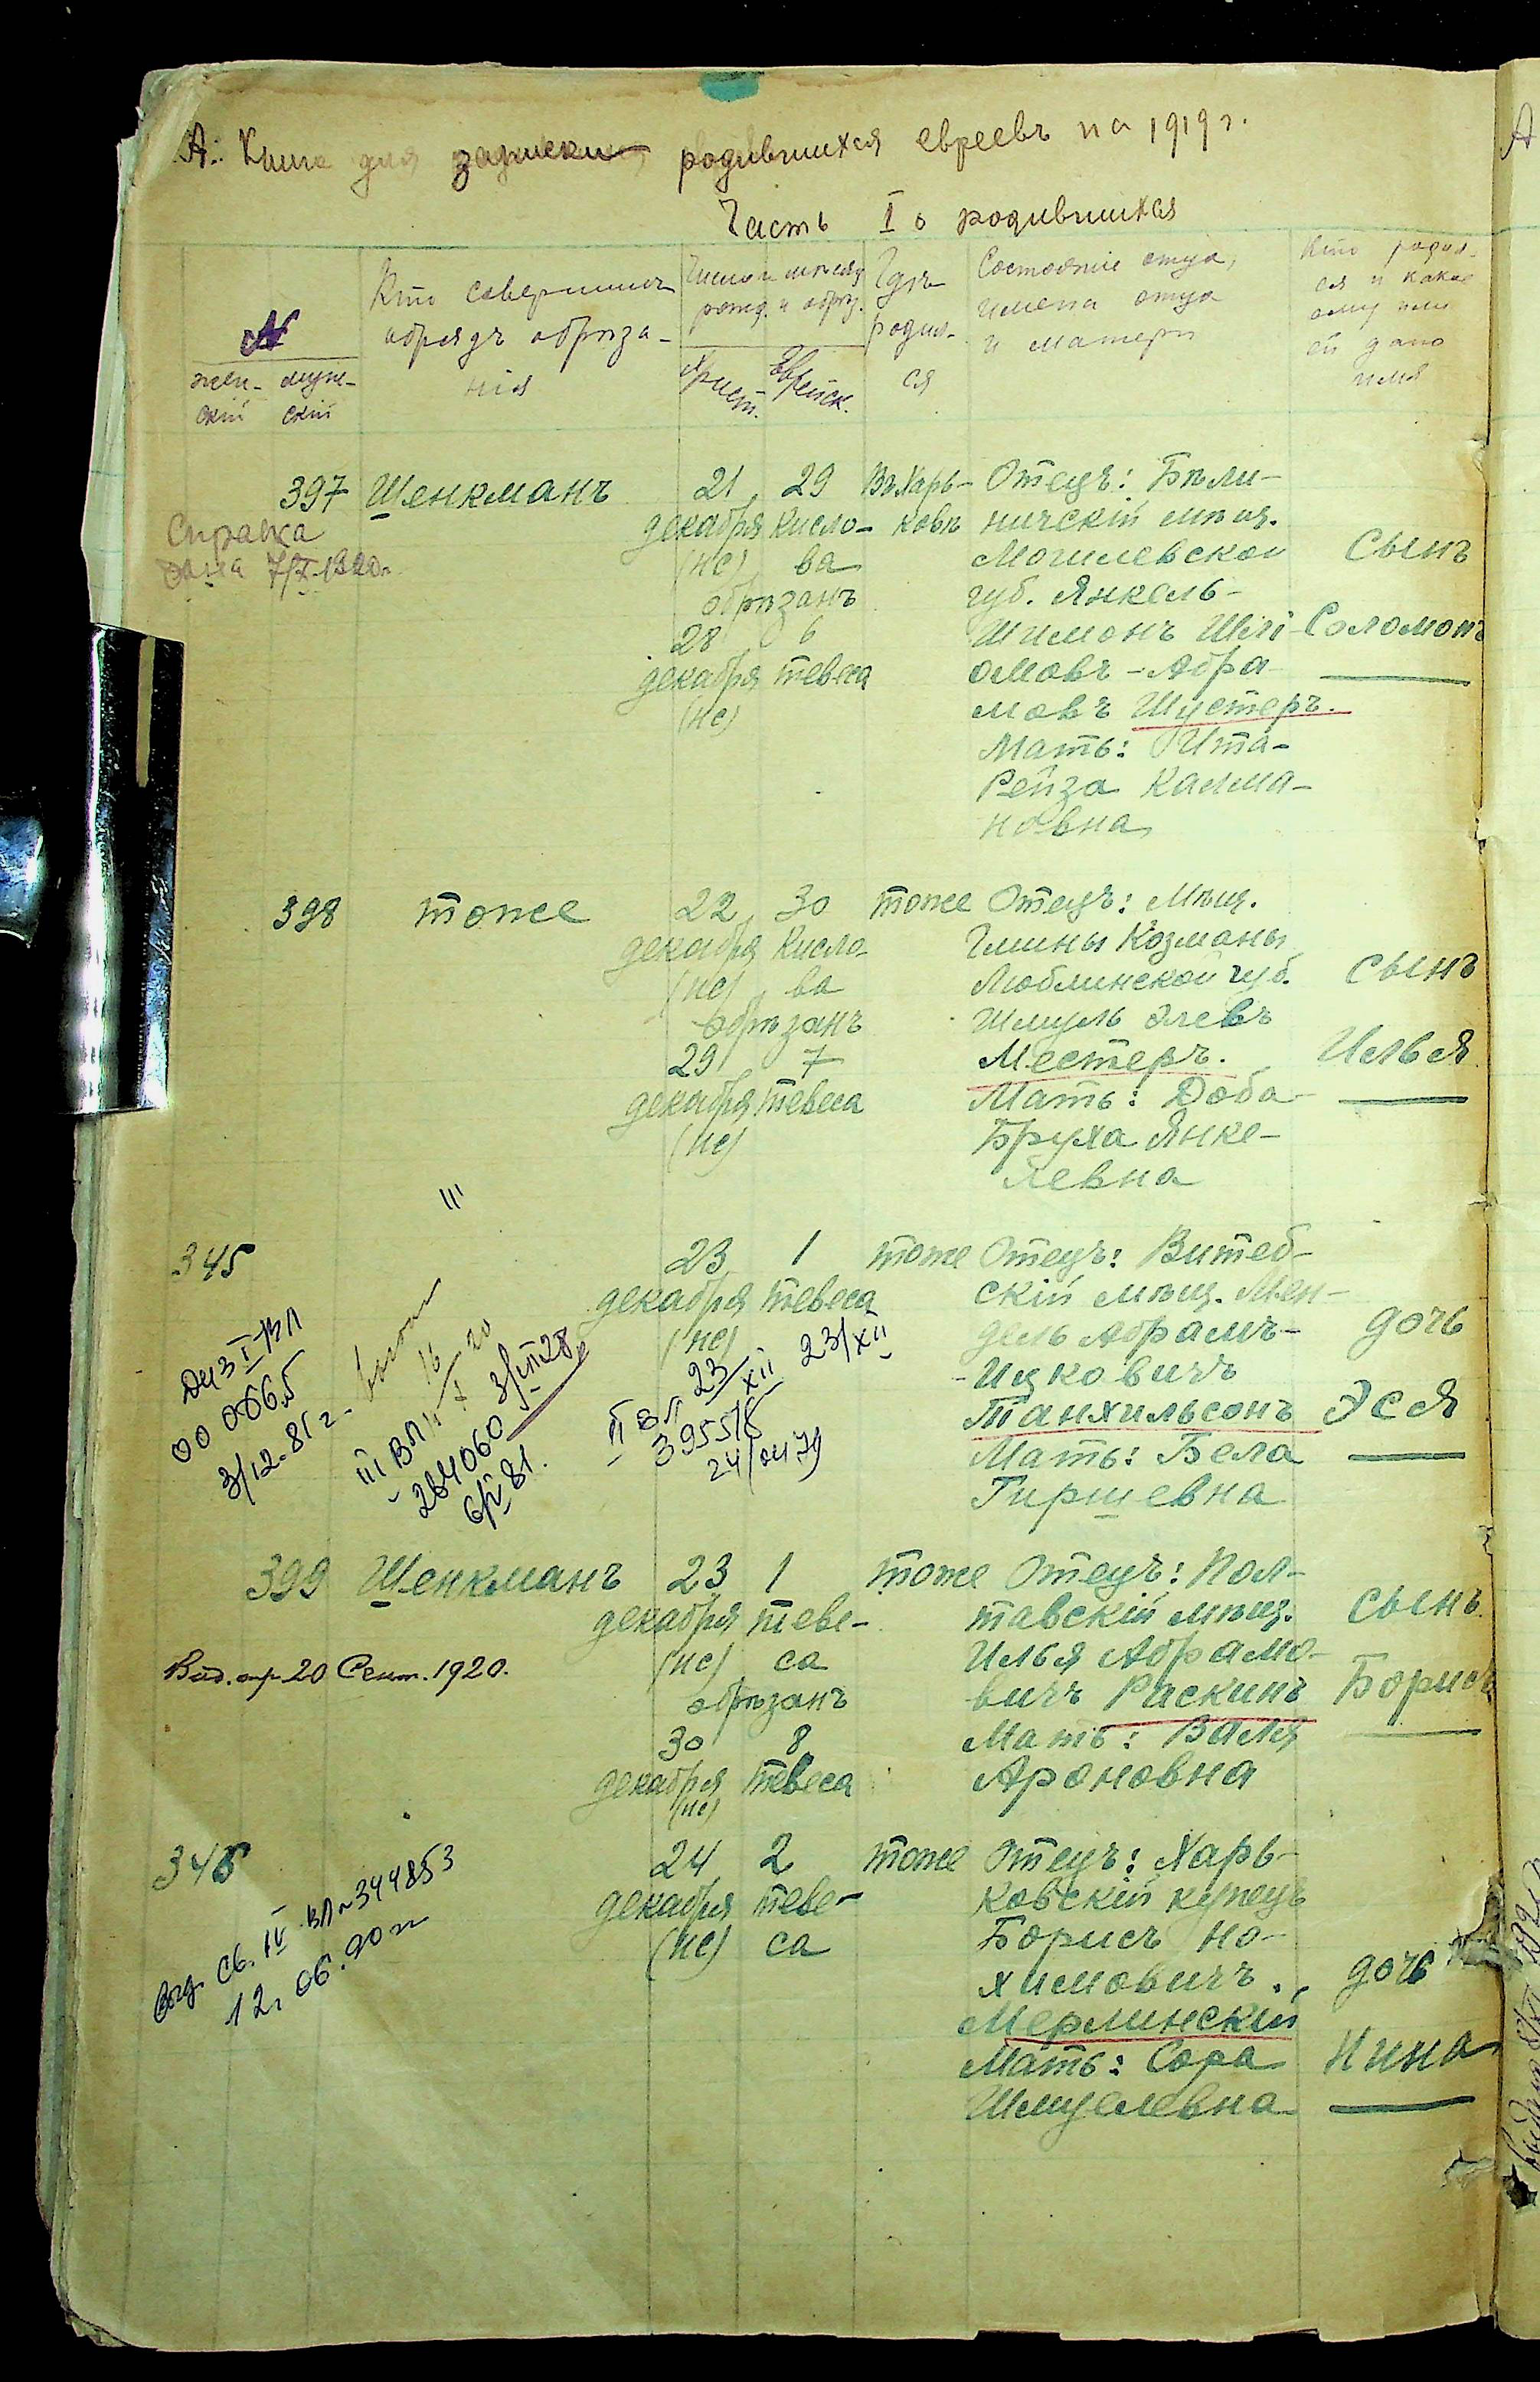 А. Книга для записки родившихся евреевъ на 1919 г.
Часть I о родившихся
№
жен-
скій
муж-
ской
Кто совершилъ
обрядъ обрѣза-
нія
Число и мѣсяцъ
рожд. и обрѣз.
Христ.
Еврейск.
Гдѣ
родил-
ся
Состояніе отца,
имена отца
и матери
Кто родил-
ся и какое
ему или
ей дано
имя
397 Шенкманъ
Справка
дана 7/X 1920 г.
21
декабря
(нс)
29
Кисле-
ва
обрѣзанъ
28
декабря
(нс)
6
тевеса
Въ Харь-
ковѣ
Отецъ: Бѣли-
ничскій мѣщ.
Могилевской
губ. Янкель-
Шимонъ Шлі-
омовъ-Абра-
мовъ Шустеръ.
Мать: Ита-
Рейза Калма-
новна
Сынъ
Соломонъ
398 тоже
22
декабря
(нс)
30
Кисле-
ва
обрѣзанъ
29
декабря
(нс)
7
тевеса
тоже
Отецъ: Мѣщ.
Гмины Козманы
Люблинской губ.
Шмуль Элевъ
Местеръ.
Мать: Доба-
Бруха Янке-
левна
Сынъ
Илья
III
345
00 066.5
3/12-81 г.
III ВЛ
284060
6/V 81.
II ВЛ
395518
23/XII
23
декабря
(нс)
1
тевеса
тоже
Отецъ: Витеб-
скій мѣщ. Мен-
дель Абрамъ-
Ицковичъ
Танхильсонъ
Мать: Бела
Гиршевна
дочь
Эся
399 Шенкманъ
Выд. спр. 20 Сент. 1920.
23
декабря
(нс)
1
теве-
са
обрѣзанъ
30
декабря
(нс)
8
тевеса
тоже
Отецъ: Пол-
тавскій мѣщ.
Илья Абрамо-
вичъ Раскинъ
Мать: Валя
Ароновна
сынъ
Борисъ
346
выд. св. IV ВЛ № 344853
12.06.90 г.
24
декабря
(нс)
2
теве-
са
тоже
Отецъ: Харь-
ковскій купецъ
Борисъ Но-
химовичъ
Мерлинскій
Мать: Сора
Шмуелевна
дочь
Нина